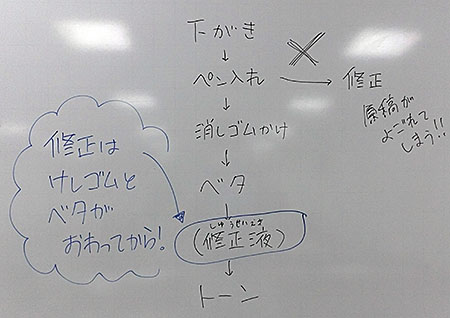 下がき
↓
ペン入れ → 修正
×
原稿が
よごれて
しまう!!
↓
消しゴムかけ
↓
ベタ
↓
しゅうせいえき
(修正液)
↓
トーン
修正は
けしゴムと
ベタが
おわってから!